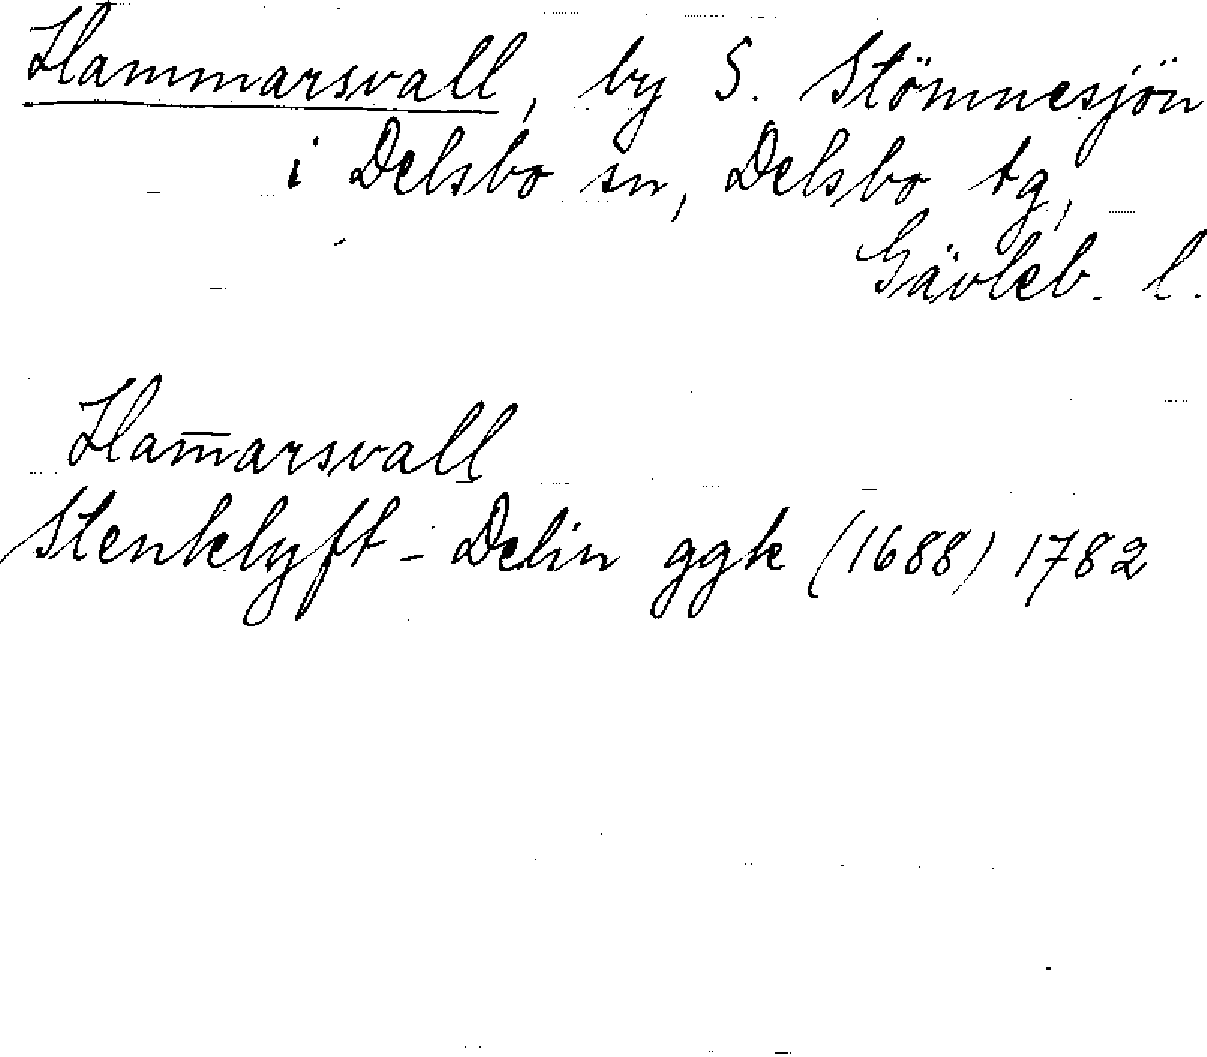 Hammarsvall, by S. Stömnesjön
i Delsbo sn, Delsbo tg,
Gävleb. l.
Ham̅arsvall
Stenklyft - Delin ggk (1688) 1782